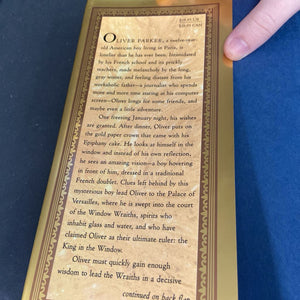 $18.95 US
OLIVER PARKER, a twelve-year-
old American boy living in Paris, is
lonelier than he has ever been. Intimidated
by his French school and its prickly
teachers, made melancholy by the long,
gray winter, and feeling distant from his
workaholic father—a journalist who spends
more and more time staring at his computer
screen—Oliver longs for some friends, and
maybe even a little adventure.
One freezing January night, his wishes
are granted. After dinner, Oliver puts on
the gold paper crown that came with his
Epiphany cake. He looks at himself in the
window and instead of his own reflection,
he sees an amazing vision—a boy hovering
in front of him, dressed in a traditional
French doublet. Clues left behind by this
mysterious boy lead Oliver to the Palace of
Versailles, where he is swept into the court
of the Window Wraiths, spirits who
inhabit glass and water, and who have
claimed Oliver as their ultimate ruler: the
King in the Window.
Oliver must quickly gain enough
wisdom to lead the Wraiths in a decisive
continued on back flap